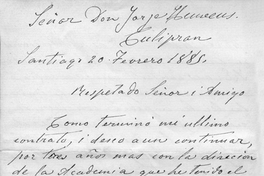 Señor Don Jorge Huneeus.
Culipran
Santiago 20 Fevrero 1885.
Respetado Señor i Amigo
Como terminó mi ultimo
contrato, i deseo aun continuar,
por tres años mas con la direccion
de la Academia que he tenido el